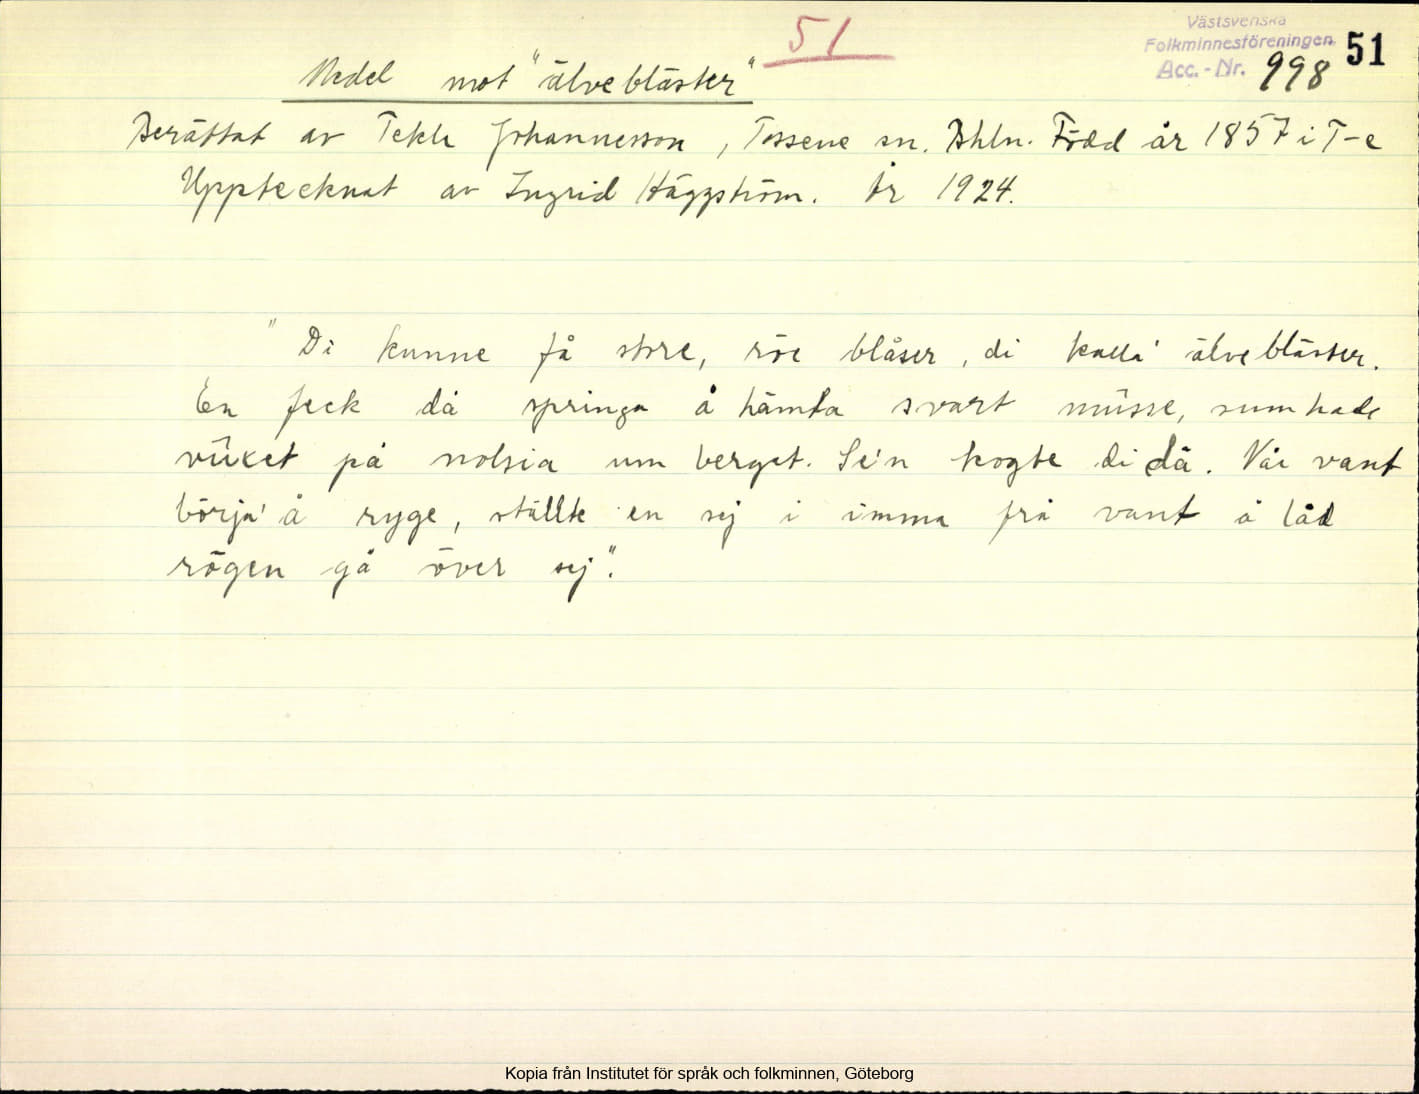 51
Västsvenska
Folkminnesföreningen
Acc.-Nr. 998
51
Medel mot "älvebläster"
Berättat av Tekla Johannesson, Tossene sn. Bhln. Född år 1857 i T-e
Upptecknat av Ingrid Häggström. År 1924.
"Di kunne få store, röe blåser, di kalla' älvebläster.
En feck då springa å hämta svart müsse, sum hade
vüxet på nolsia um berget. Se'n kogte di dä. När vant
börja' å ryge, ställte en sej i imma frå vant å låd
rögen gå över sej".
Kopia från Institutet för språk och folkminnen, Göteborg